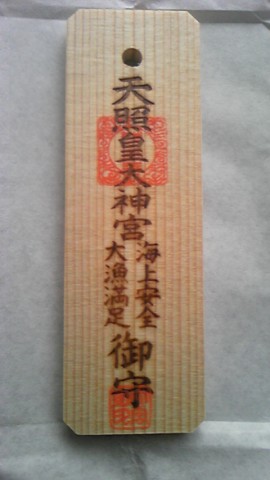 天照皇大神宮
海上安全
大漁満足
御守